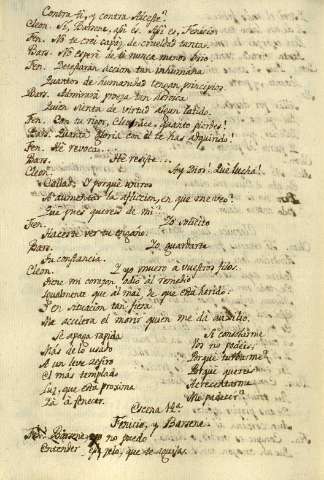 Contra ti, y contra Alceste.
Cleon. Si, Barsene, asi es. Asi es, Fenicio.
Fen. No te crei capaz de crueldad tanta.
Bars. No esperé de ti nunca menor brio.
Fen. Detestarán accion tan inhumana
Quantos de humanidad tengan principios.
Bars. Admirará proeza tan heroica
Quien sienta de virtud algun latido.
Fen. Con tu rigor, Cleonice, quanto pierdes!
Bars. Quanta gloria con él te has adquirido!
Fen. He revoca
Bars. He resiste
Cleon. Ay Dios! Qué lucha!
Callad. O porqué
A aumentar la afliccion, en que me veo?
Pues que quereis de mi
Fen. Yo solicito
Hacerte ver tu engaño.
Bars. Yo guardarte
Tu constancia.
Cleon. Y yo muero a vuestros filos.
Tiene mi corazon odio al remedio
Igualmente que al mal, de que está herido:
Y en situacion tan fiera
Me acelera el morir quien me dá auxilio.
Se apaga rapida
Mas de lo usado
A un leve zefiro
El mas templado
Luz, que está proxima
Yá á fenecer.
Si consolarme
Vos no podeis;
Porqué turbarme?
Porqué quereis
Acrecentarme
Mi padecer?
Escena 14ª
Fenicio, y Barsene.
Fen. Barsene, yo no puedo
Entender el zelo, que te aquexa.